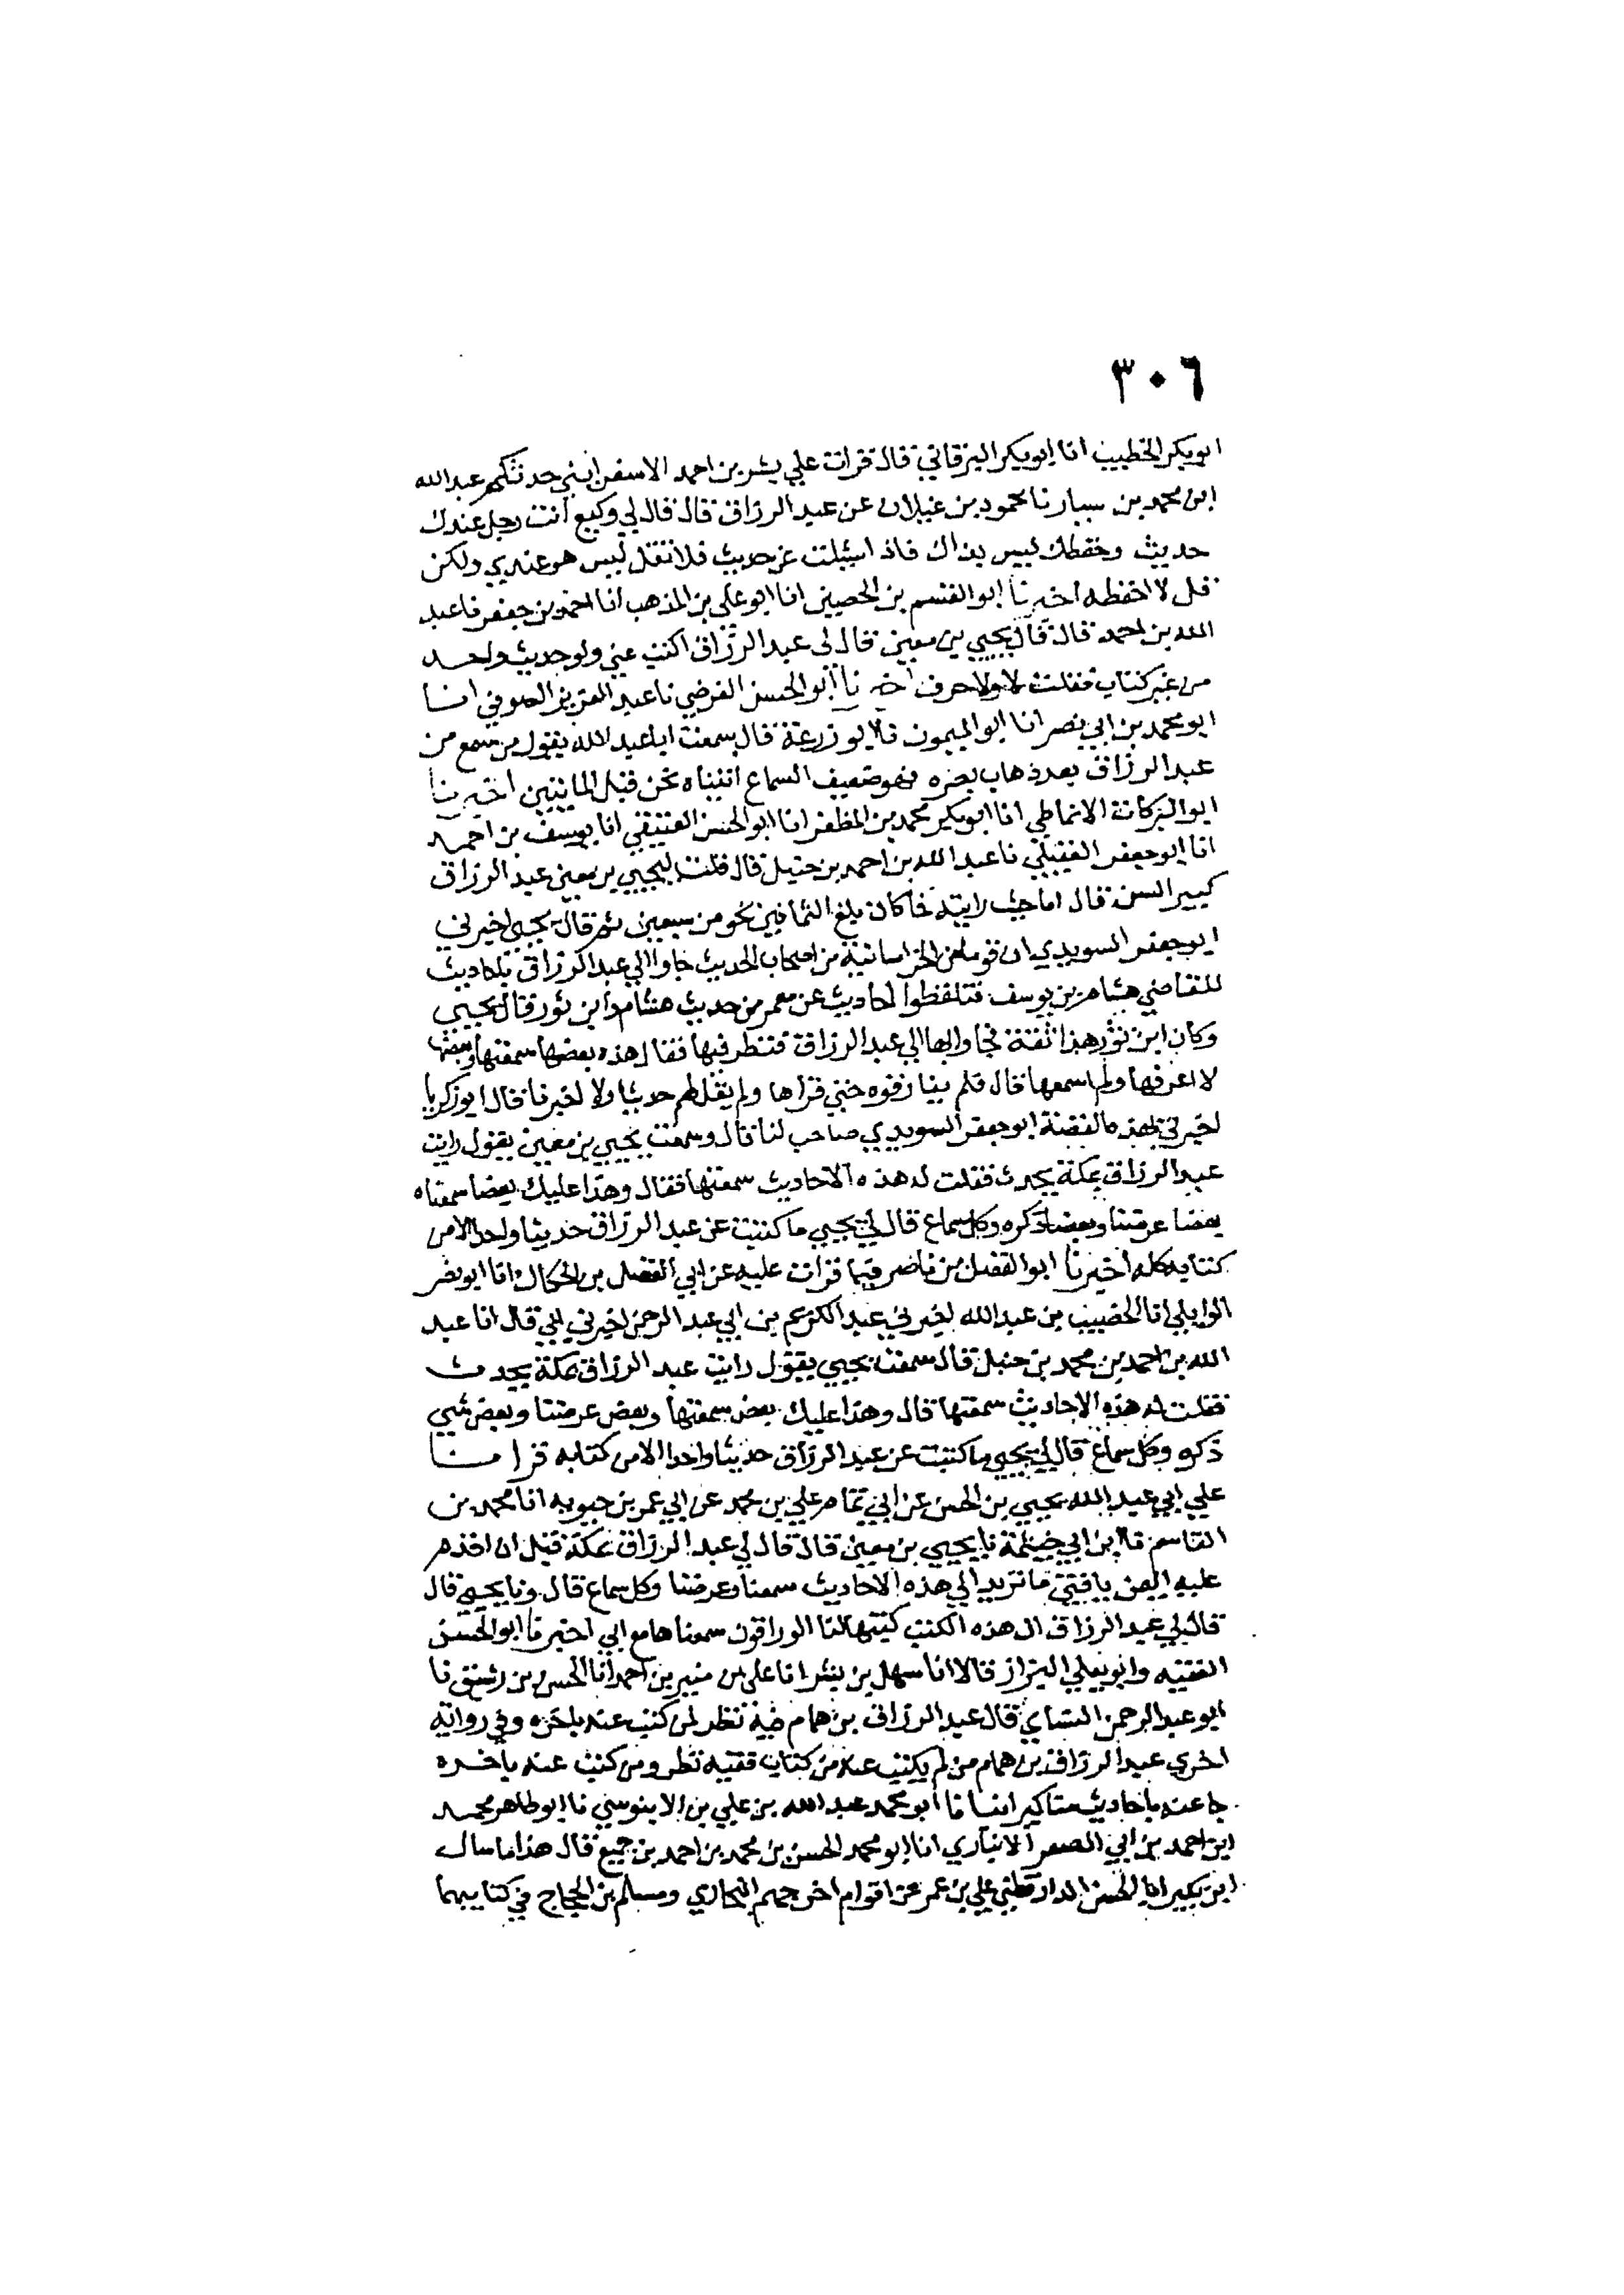 ٣٠٦
ابو بكر الخطيب انا ابو بكر البرقاني قال قرات علي بشر بن احمد الاسفرايني حدثكم عبد الله
ابن محمد بن سيار نا محمود بن غيلان عن عبد الرزاق قال قال لي وكيع انت رجل عندك
حديث وحفظك ليس بذاك فاذا سئلت عن حديث فلا تقل ليس هو عندي ولكن
قل لا احفظه اخبرنا ابو القسم بن الحصين انا ابو علي بن المذهب انا احمد بن جعفر نا عبد
الله بن احمد قال قال يحيي بن معين قال لي عبد الرزاق اكتب عني ولو حديث واحد
من غير كتاب فقلت لا ولا حرف اخبرنا ابو الحسن الفرضي نا عبد العزيز الصوفي انا
ابو محمد بن ابي نصر انا ابو الميمون نا ابو زرعة قال سمعت ابا عبد الله يقول من سمع من
عبد الرزاق بعد ذهاب بصره فهو ضعيف السماع اتيناه نحن قبل المايتين اخبرنا
ابو البركات الانماطي انا ابو بكر محمد بن المظفر انا ابو الحسن العتيقي انا يوسف بن احمد
انا ابو جعفر العقيلي نا عبد الله بن احمد بن حنبل قال قلت ليحيي بن معين عبد الرزاق
كبير السن قال اما حيث رايته فما كان بلغ الثمانين نحو من سبعين ثم قال يحيي اخبرني
ابو جعفر السويدي ان قوما من الخراسانية من اصحاب الحديث جاوا الي عبد الرزاق باحاديث
للقاضي هشام بن يوسف فتلقطوا احاديث عن معمر من حديث هشام وابن ثور قال يحيي
وكان ابن ثور هذا ثقة فجاوا بها الي عبد الرزاق فنظر فيها فقال هذه بعضها سمعتها وبعضها
لا اعرفها ولم اسمعها قال فلم يفارقوه حتي قراها ولم يقل لهم حدثنا ولا اخبرنا قال ابو زكريا
اخبرني بهذه القصة ابو جعفر السويدي صاحب لنا قال وسمعت يحيي بن معين يقول رايت
عبد الرزاق بمكة يحدث فقلت له هذه الاحاديث سمعتها فقال وهذا عليك بعضا سمعناه
بعضا عرضنا وبعضا ذكره وكل سماع قال لي يحيي ما كتبت عن عبد الرزاق حديثا واحدا الا من
كتابه كله اخبرنا ابو الفضل بن ناصر فيما قرات عليه عن ابي الفضل بن الحكاك انا ابو نصر
الوايلي انا الخصيب بن عبد الله اخبرني عبد الكريم بن ابي عبد الرحمن اخبرني ابي قال انا عبد
الله بن احمد بن محمد بن حنبل قال سمعت يحيي يقول رايت عبد الرزاق بمكة يحدث
فقلت له هذه الاحاديث سمعتها قال وهذا عليك بعض سمعتها وبعض عرضنا وبعض شي
ذكره وكل سماع قال لي يحيي ما كتبت عن عبد الرزاق حديثا واحدا الا من كتابه قرا منا
علي ابي عبد الله يحيي بن الحسن عن ابي تمام علي بن محمد عن ابي عمر بن حيويه انا محمد بن
القاسم نا ابن ابي خيثمة نا يحيي بن معين قال قال لي عبد الرزاق بمكة قبل ان اقدم
عليه اليمن يا فتي ما تريد الي هذه الاحاديث سمعنا وعرضنا وكل سماع قال ونا يحيي قال
قال لي عبد الرزاق ان هذه الكتب كتبها لنا الوراقون سمعناها مع ابي اخبرنا ابو الحسن
الفقيه وابو يعلي البزاز قالا انا سهل بن بشر انا علي بن منير بن احمد انا الحسن بن رشيق نا
ابو عبد الرحمن النساي قال عبد الرزاق بن همام فيه نظر لمن كتب عنه باخره وفي رواية
اخري عبد الرزاق بن همام من لم يكتب عنه من كتاب ففيه نظر ومن كتب عنه باخره
جا عنه باحاديث مناكير انبانا ابو محمد عبد الله بن علي بن الابنوسي نا ابو طاهر محمد
ابن احمد بن ابي الصقر الانباري انا ابو محمد الحسن بن محمد بن احمد بن جميع قال هذا ما سال
ابن بكير ابا الحسن الدارقطني علي بن عمر عن اقوام اخرجهم البخاري ومسلم بن الحجاج في كتابيهما